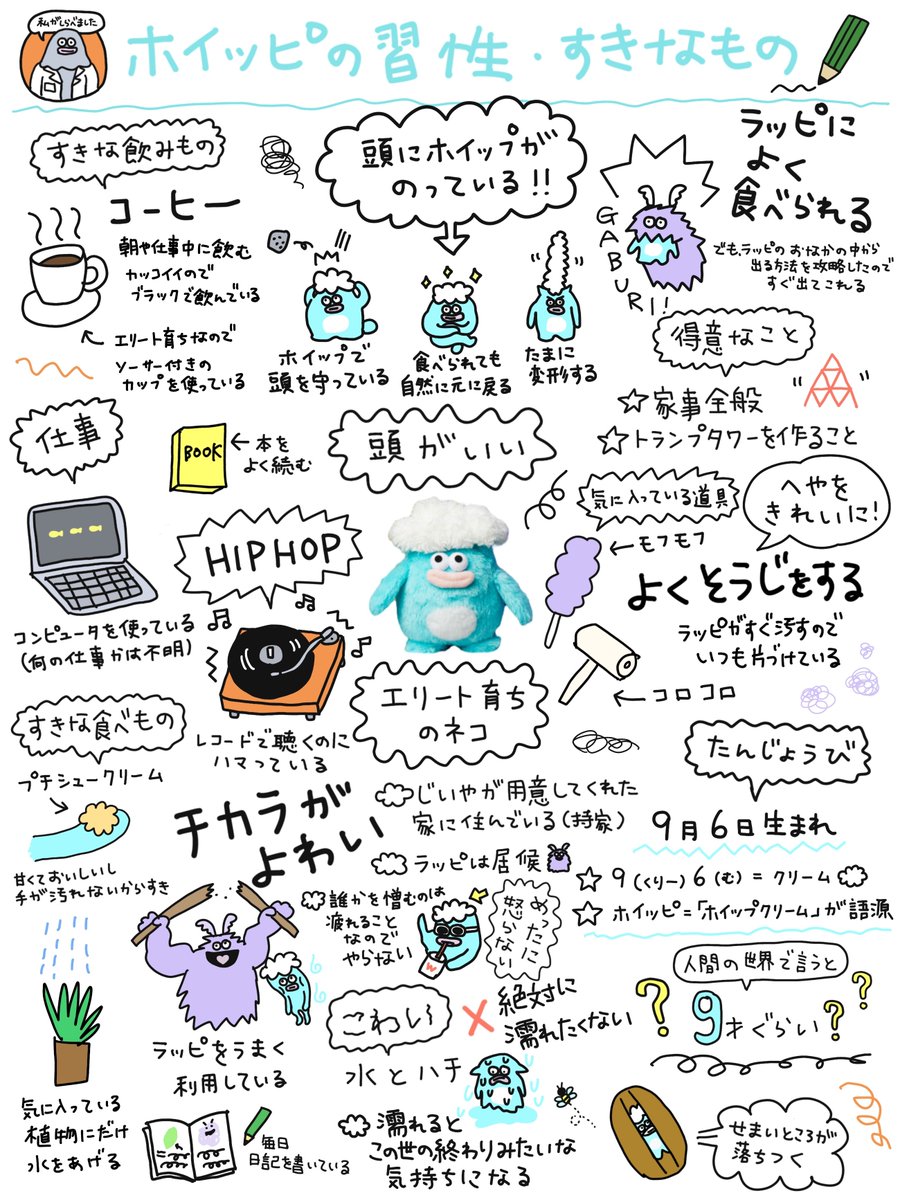 私がしらべました
ホイッピの習性・すきなもの
すきな飲みもの
コーヒー
朝や仕事中に飲む
カッコイイので
ブラックで飲んでいる
エリート育ちなので
ソーサー付きの
カップを使っている
頭にホイップが
のっている!!
ホイップで
頭を守っている
食べられても
自然に元に戻る
たまに
変形する
ラッピに
よく
食べられる
GABURI!
でも、ラッピのおなかの中から
出る方法を攻略したので
すぐ出てこれる
得意なこと
☆家事全般
☆トランプタワーを作ること
仕事
BOOK
←本を
よく読む
頭がいい
コンピュータを使っている
(何の仕事かは不明)
HIPHOP
レコードで聴くのに
ハマっている
気に入っている道具
←モフモフ
←コロコロ
へやを
きれいに!
よくそうじをする
ラッピがすぐ汚すので
いつも片づけている
すきな食べもの
プチシュークリーム
甘くておいしいし
手が汚れないからすき
エリート育ち
のネコ
じいやが用意してくれた
家に住んでいる(持家)
ラッピは居候
たんじょうび
9月6日生まれ
☆9(くりー)6(む)=クリーム
☆ホイッピ=「ホイップクリーム」が語源
チカラが
よわい
ラッピをうまく
利用している
誰かを憎むのは
疲れること
なので
やらない
W
めったに
怒らない
人間の世界で言うと
?9才ぐらい??
こわい
水とハチ
×絶対に
濡れたくない
濡れると
この世の終わりみたいな
気持ちになる
気に入っている
植物にだけ
水をあげる
毎日
日記を書いている
せまいところが
落ちつく